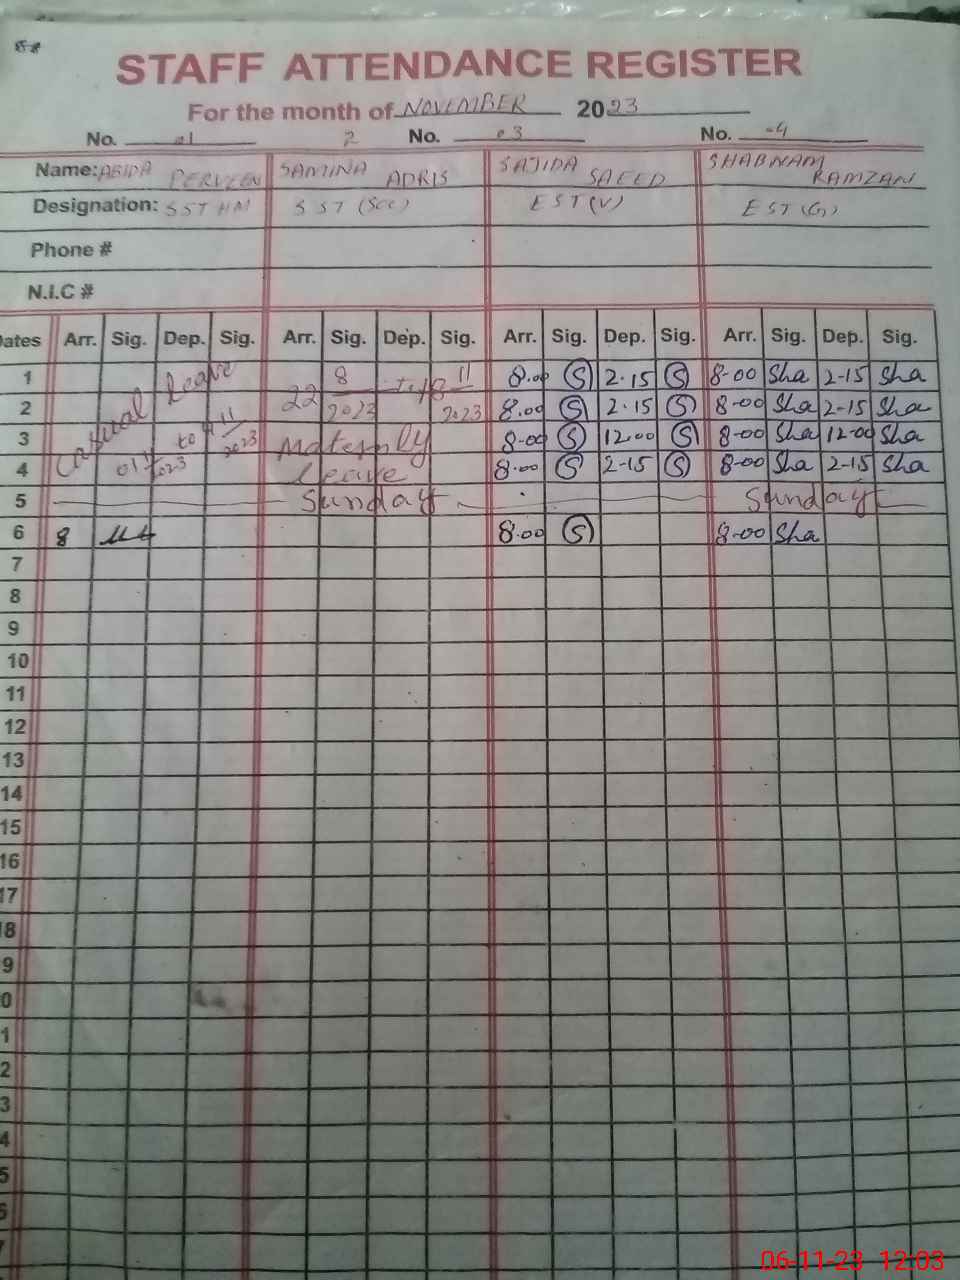 STAFF ATTENDANCE REGISTER
For the month of NOVEMBER 2023
No. 01 2 No. 03 No. 04
Name: ABIDA PERVEEN SAMINA ADRIS SAJIDA SAEED SHABNAM RAMZAN
Designation: SST HM SST (Sce) EST (V) EST (G)
Phone #
N.I.C #
ates Arr. Sig. Dep. Sig. Arr. Sig. Dep. Sig. Arr. Sig. Dep. Sig. Arr. Sig. Dep. Sig.
Casual Leave
1 22 8 11 8.00 S 2.15 S 8-00 Sha 2-15 Sha
2 2023 2023 8.00 S 2.15 S 8-00 Sha 2-15 Sha
3 to 11 2023 Maternity 8-00 S 12.00 S 8-00 Sha 12-00 Sha
4 01 2023 leave 8-00 S 2-15 S 8-00 Sha 2-15 Sha
5 Sunday Sunday
6 8 8.00 S 8-00 Sha
7
8
9
10
11
12
13
14
15
16
17
8
9
0
1
2
3
4
5
6
7
06-11-23 12:03